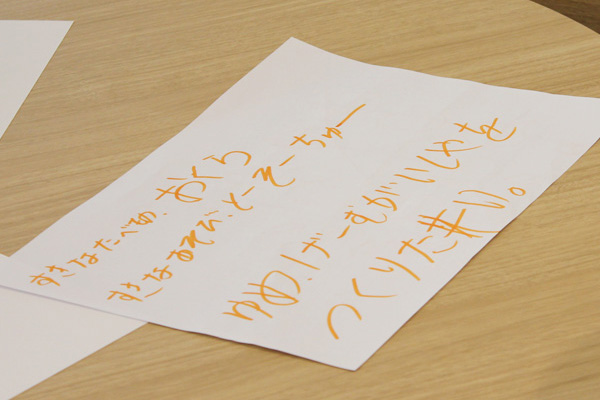 すきなたべめ. おくら
すきなあそび. とーそーちゅー
ゆめ. げーむがいしゃを
つくりたい。